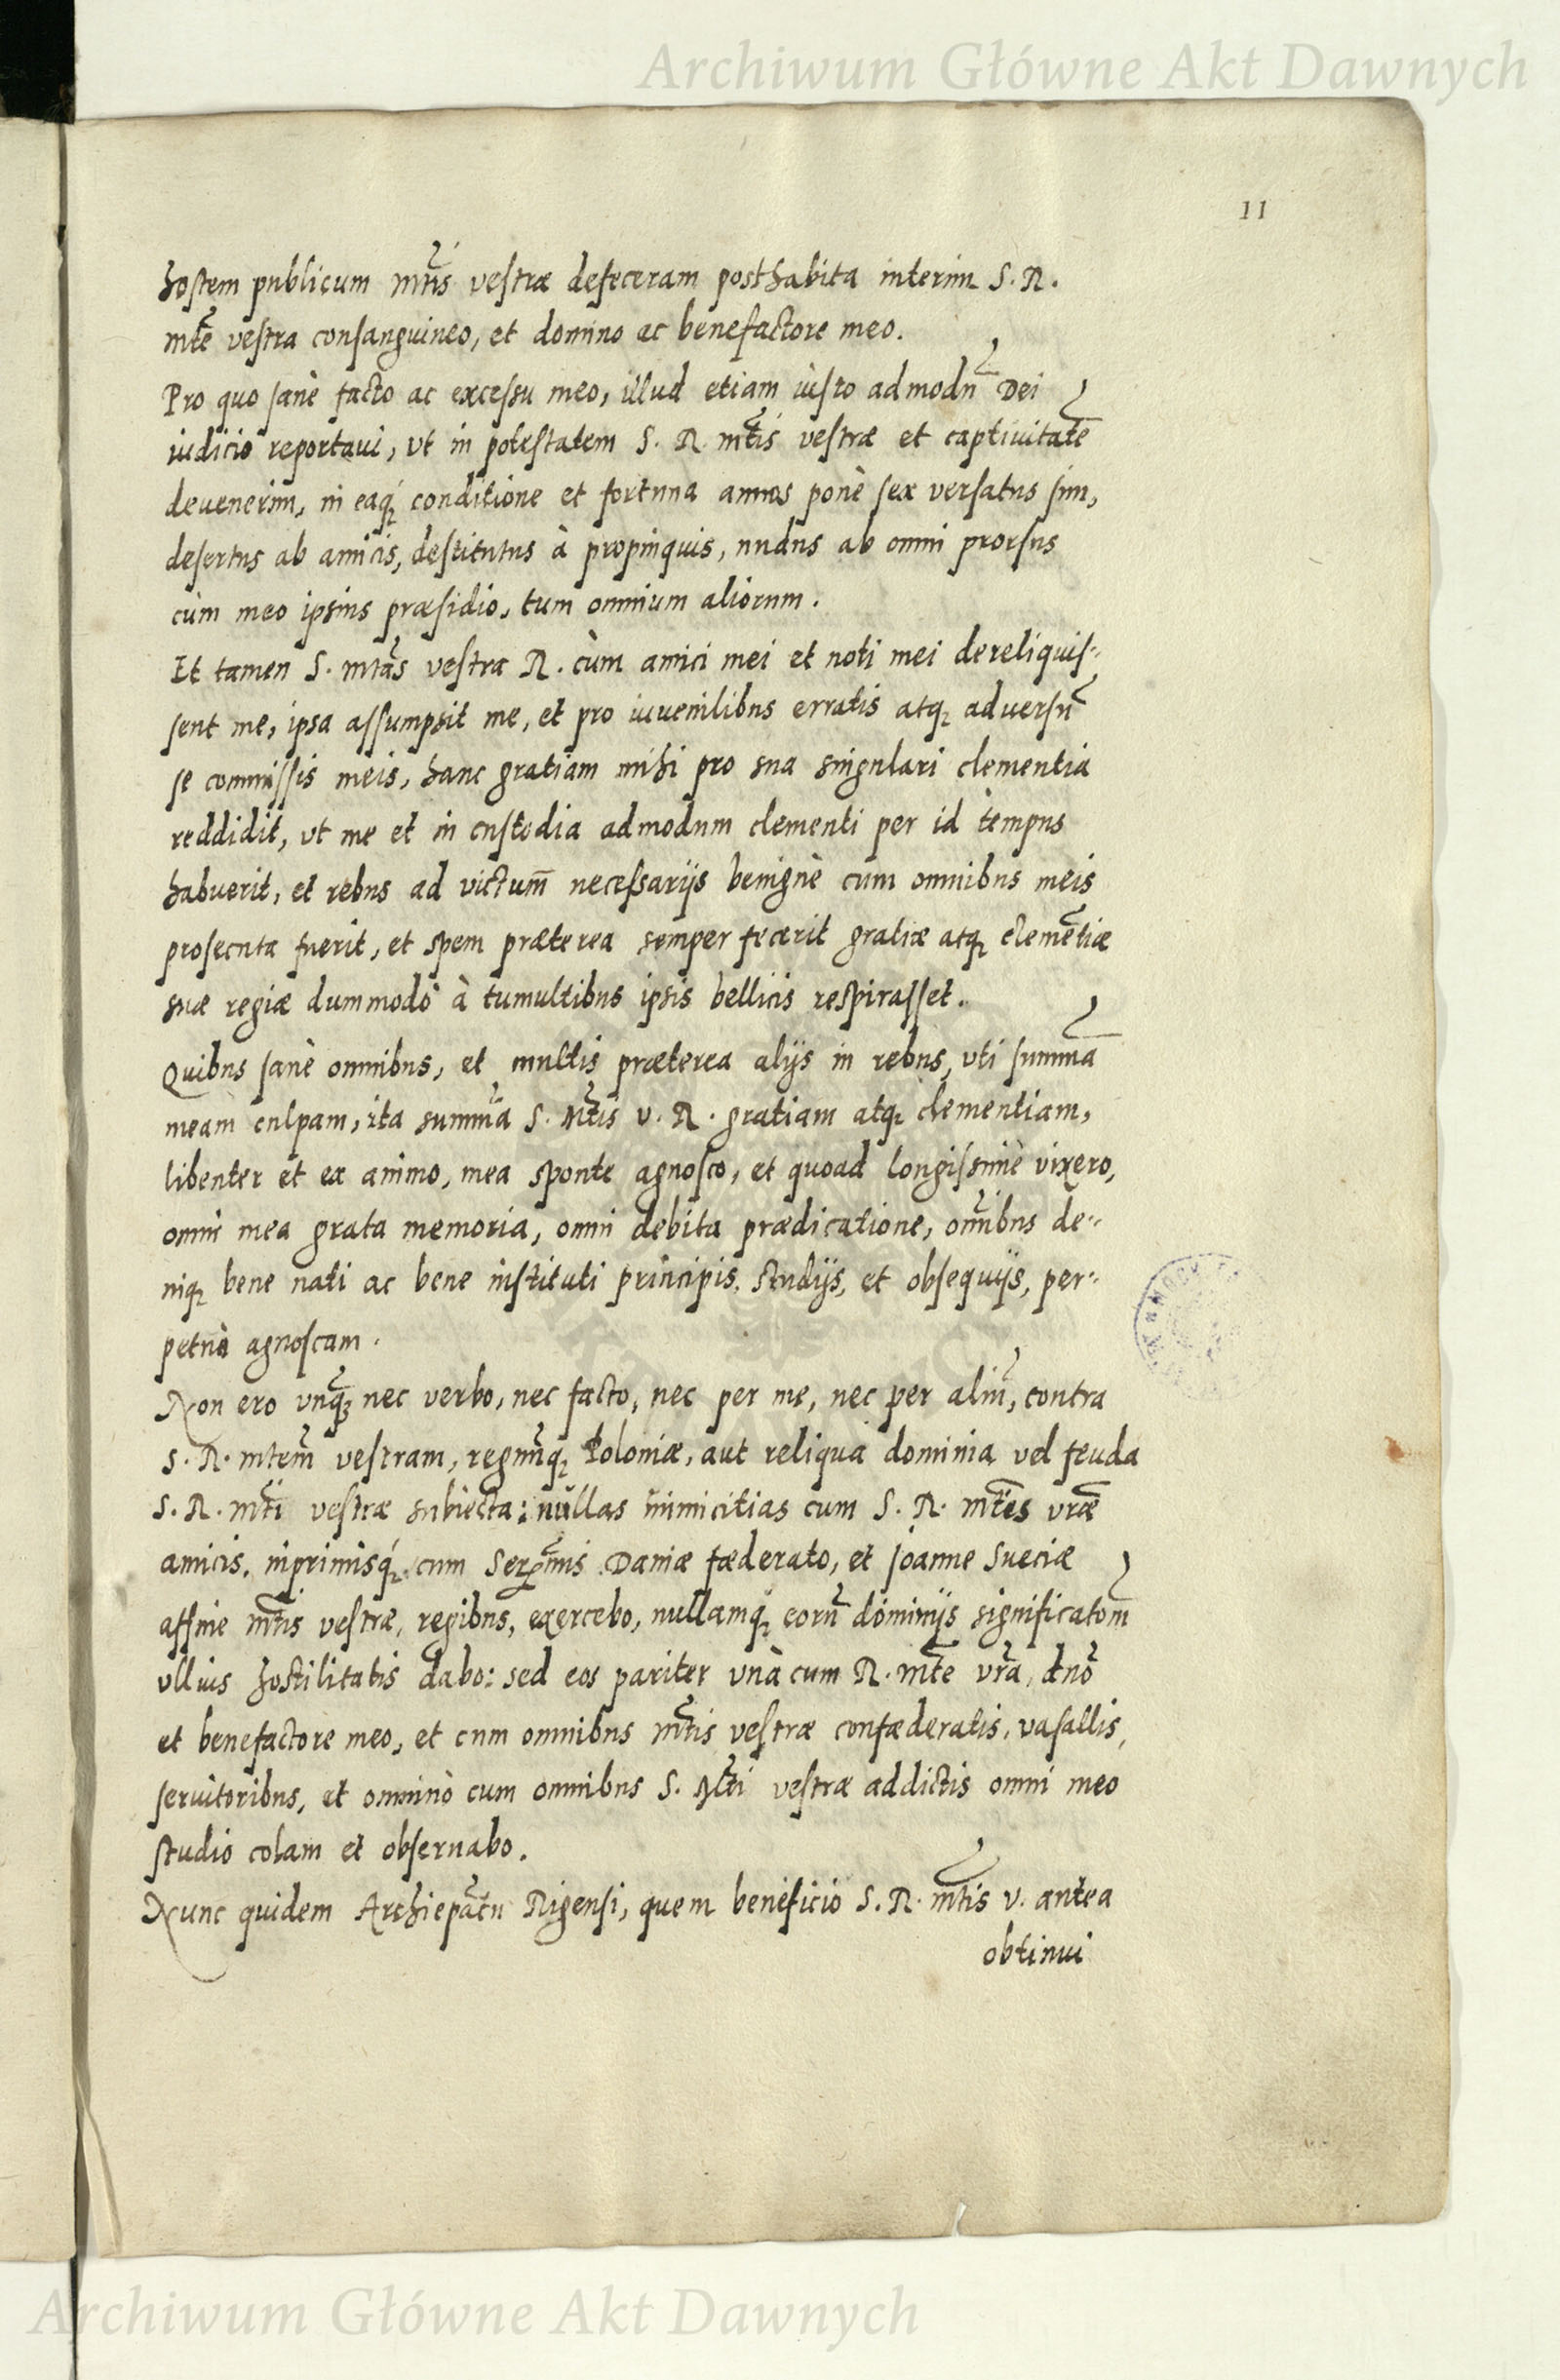 Archiwum Główne Akt Dawnych
11
hostem publicum Mtis vestræ defeceram posthabita interim S. R.
mte vestra consanguineo, et domino ac benefactore meo.
Pro quo sanè facto ac excessu meo, illud etiam iusto admodũ Dei
iudicio reportaui, vt in potestatem S. R. mtis vestræ et captiuitatẽ
deuenerim, in eaq́; conditione et fortuna annos ponè sex versatus sim,
desertus ab amicis, destitutus à propinquis, nudus ab omni prorsus
cùm meo ipsius præsidio, tum omnium aliorum.
Et tamen S. mtas vestra R. cùm amici mei et noti mei dereliquis-
sent me, ipsa assumpsit me, et pro iuuenilibus erratis atq; aduersũ
se commissis meis, hanc gratiam mihi pro sua singulari clementia
reddidit, vt me et in custodia admodum clementi per id tempus
habuerit, et rebus ad victum̃ necessarijs benignè cum omnibus meis
prosecuta fuerit, et spem præterea semper fecerit gratiæ atq; clemẽtiæ
suæ regiæ dummodò à tumultibus ipsis bellicis respirasset.
Quibus sanè omnibus, et multis præterea alijs in rebus, vti summã
meam culpam, ita summã S. Mtis v. R. gratiam atq; clementiam,
libenter et ex animo, mea sponte agnosco, et quoad longissimè vixero,
omni mea grata memoria, omni debita prædicatione, om̃ibus de-
niq; bene nati ac bene instituti principis, studijs, et obsequijs, per-
petuò agnoscam.
Non ero vnq̃; nec verbo, nec facto, nec per me, nec per aliũ, contra
S. R. mtem vestram, regnũq; Poloniæ, aut reliqua dominia vel feuda
S. R. mti vestræ subiecta: nullas inimicitias cum S. R. mtẽs vræ
amicis, inprimisq́; cum Serẽmis Daniæ fæderato, et Joanne Sueciæ
affine Mtis vestræ, regibus, exercebo, nullamq́; eorũ dominijs significatom̃
vllius hostilitatis dabo: sed eos pariter vnà cum R. Mte vra, dno
et benefactore meo, et cum omnibus Mtis vestræ confæderatis, vasallis,
seruitoribus, et omninò cum omnibus S. Mti vestræ addictis omni meo
studio colam et obseruabo.
Nunc quidem Archiepatu Rigensi, quem beneficio S. R. mtis v. antea
obtinui
Archiwum Główne Akt Dawnych